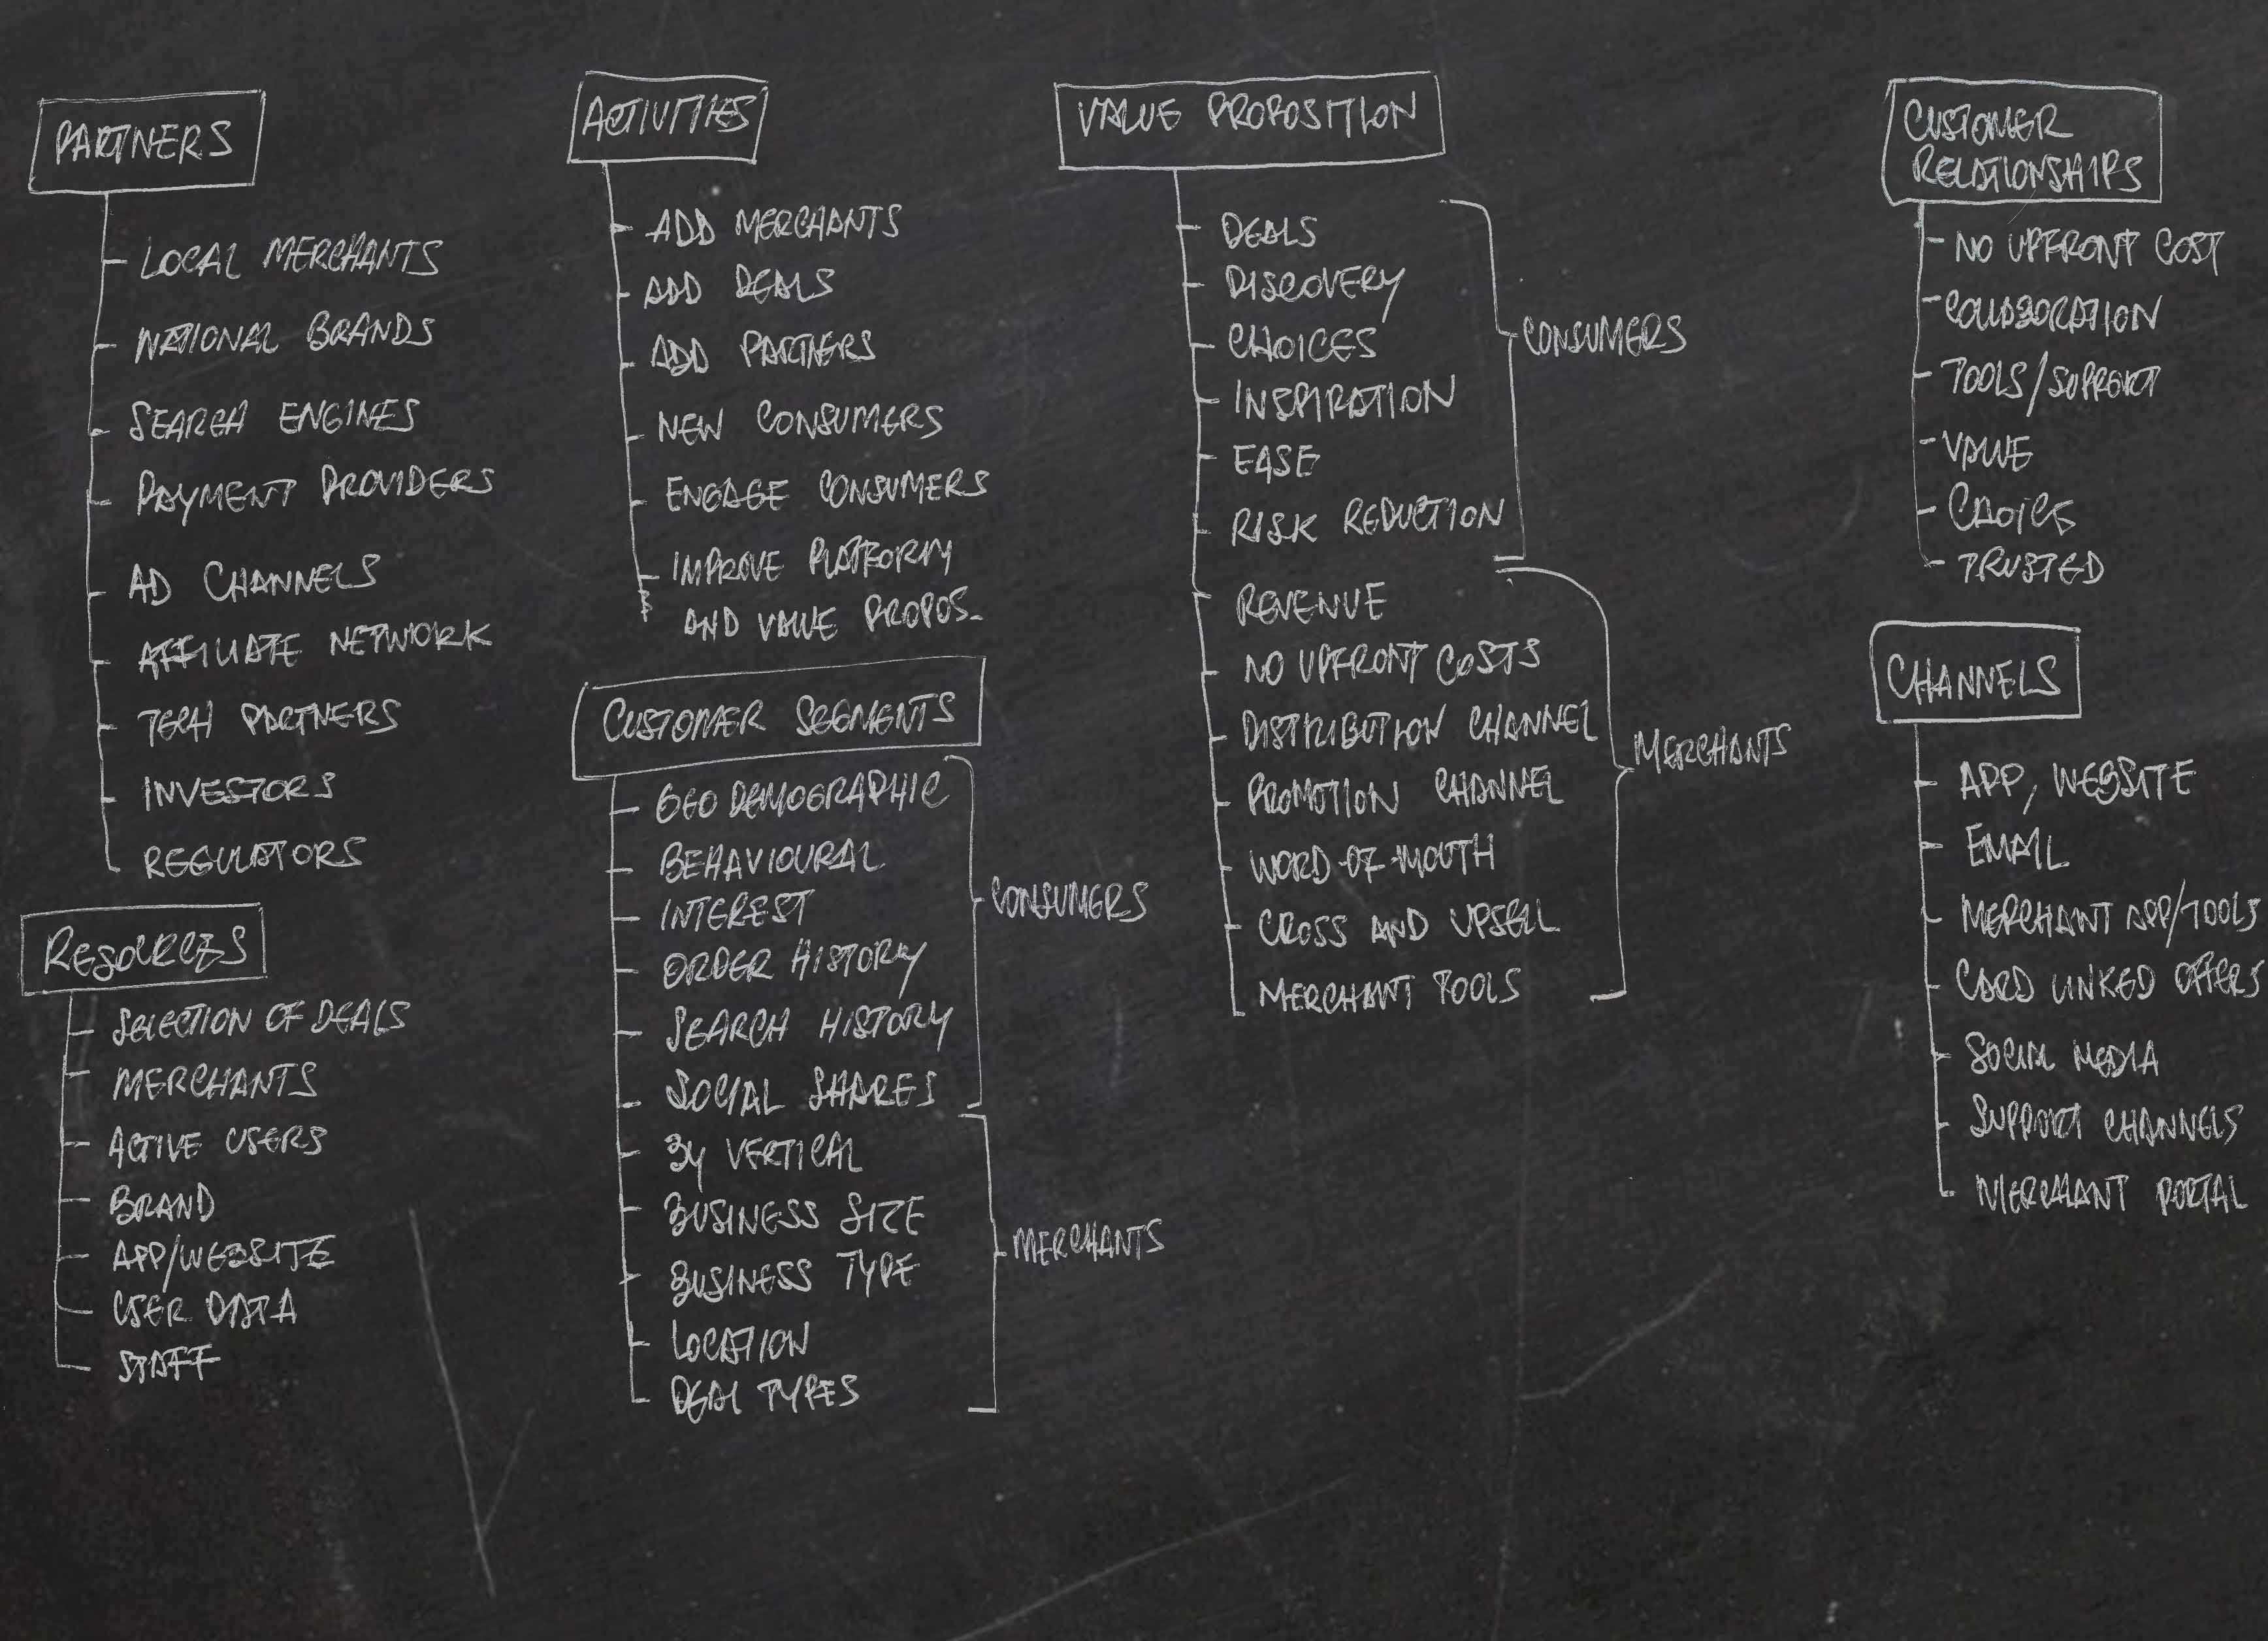 PARTNERS
LOCAL MERCHANTS
NATIONAL BRANDS
SEARCH ENGINES
PAYMENT PROVIDERS
AD CHANNELS
AFFILIATE NETWORK
TECH PARTNERS
INVESTORS
REGULATORS
RESOURCES
SELECTION OF DEALS
MERCHANTS
ACTIVE USERS
BRAND
APP/WEBSITE
USER DATA
STAFF
ACTIVITIES
ADD MERCHANTS
ADD DEALS
ADD PARTNERS
NEW CONSUMERS
ENGAGE CONSUMERS
IMPROVE PLATFORM
AND VALUE PROPOS.
CUSTOMER SEGMENTS
GEO DEMOGRAPHIC
BEHAVIOURAL
INTEREST
ORDER HISTORY
SEARCH HISTORY
SOCIAL SHARES
CONSUMERS
BY VERTICAL
BUSINESS SIZE
BUSINESS TYPE
LOCATION
DEAL TYPES
MERCHANTS
VALUE PROPOSITION
DEALS
DISCOVERY
CHOICES
INSPIRATION
EASE
RISK REDUCTION
CONSUMERS
REVENUE
NO UPFRONT COSTS
DISTRIBUTION CHANNEL
PROMOTION CHANNEL
WORD-OF-MOUTH
CROSS AND UPSELL
MERCHANT TOOLS
MERCHANTS
CUSTOMER
RELATIONSHIPS
NO UPFRONT COST
COLLABORATION
TOOLS/SUPPORT
VALUE
CHOICE
TRUSTED
CHANNELS
APP, WEBSITE
EMAIL
MERCHANT APP/TOOLS
CARD LINKED OFFERS
SOCIAL MEDIA
SUPPORT CHANNELS
MERCHANT PORTAL